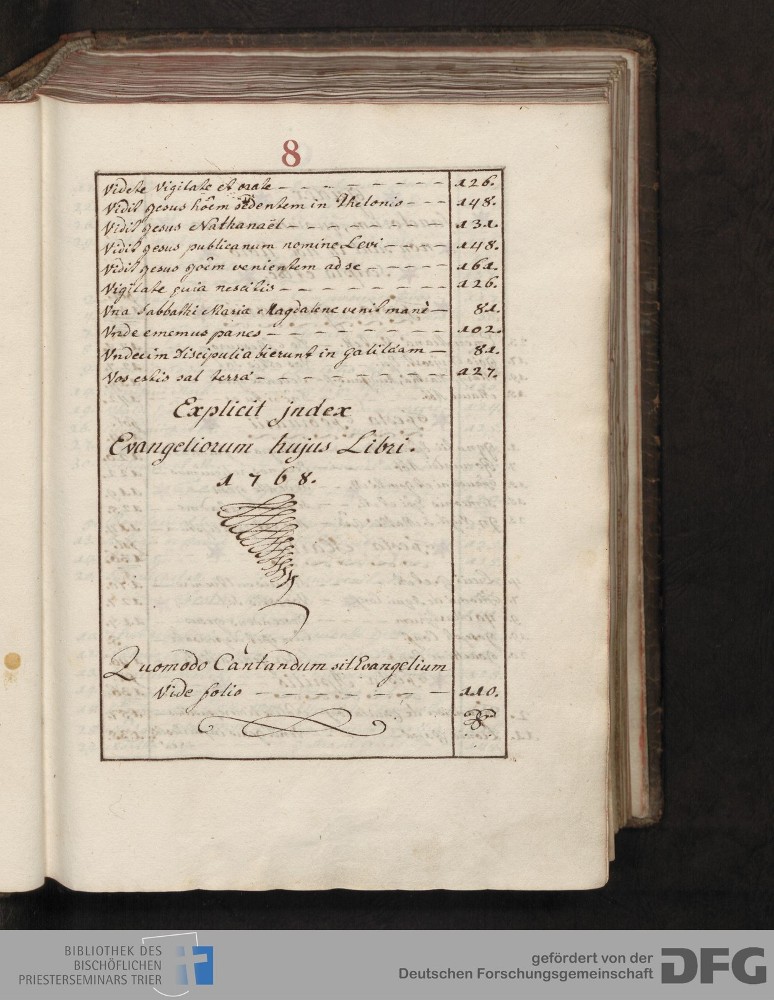 8
Videte Vigilate et orate 126.
Vidit Jesus hôem sedentem in Thelonio 148.
Vidit Jesus Nathanaël 131.
Vidit Jesus publicanum nomine Levi 148.
Vidit Jesus Joêm venientem ad se 161.
Vigilate quia nescitis 126.
Vna Sabbathi Maria Magdalene venit manè 81.
Vnde ememus panes 102.
Vndecim Discipuli abierunt in Galilæam 81.
Vos estis sal terræ 127.
Explicit jndex
Evangeliorum hujus Libri.
1768.
Quomodo Cantandum sit Evangelium
Vide folio 110.
BIBLIOTHEK DES
BISCHÖFLICHEN
PRIESTERSEMINARS TRIER
gefördert von der
Deutschen Forschungsgemeinschaft
DFG